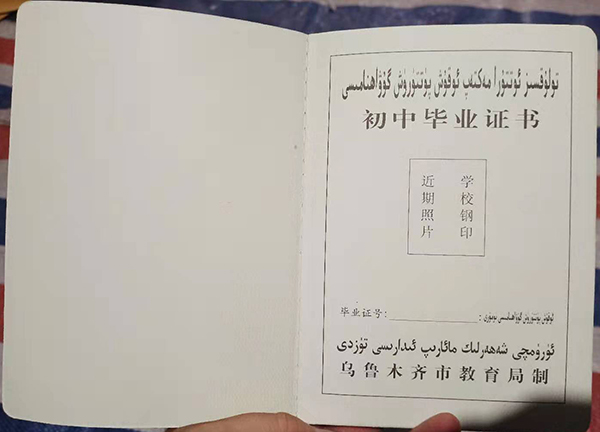 تولۇقسىز ئوتتۇرا مەكتەپ ئوقۇش پۈتتۈرۈش گۇۋاھنامىسى
初中毕业证书
近期照片
学校钢印
毕业证号:
ئوقۇش پۈتتۈرۈش گۇۋاھنامىسى نومۇرى:
ئۈرۈمچى شەھەرلىك مائارىپ ئىدارىسى تۈزدى
乌鲁木齐市教育局制